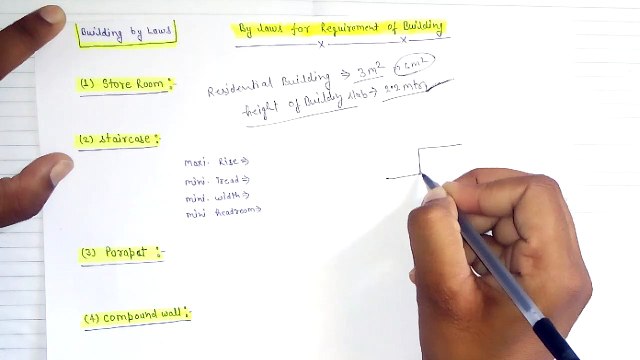 Building by Laws
By laws for Requirement of Building
(1) Store Room :-
Residential Building ⇒ 3m²
height of Building slab → 2.2 mtr
(2) Staircase :-
maxi. Rise ⇒
mini. Tread ⇒
mini. width ⇒
mini headroom ⇒
(3) Parapet :-
(4) Compound wall :-